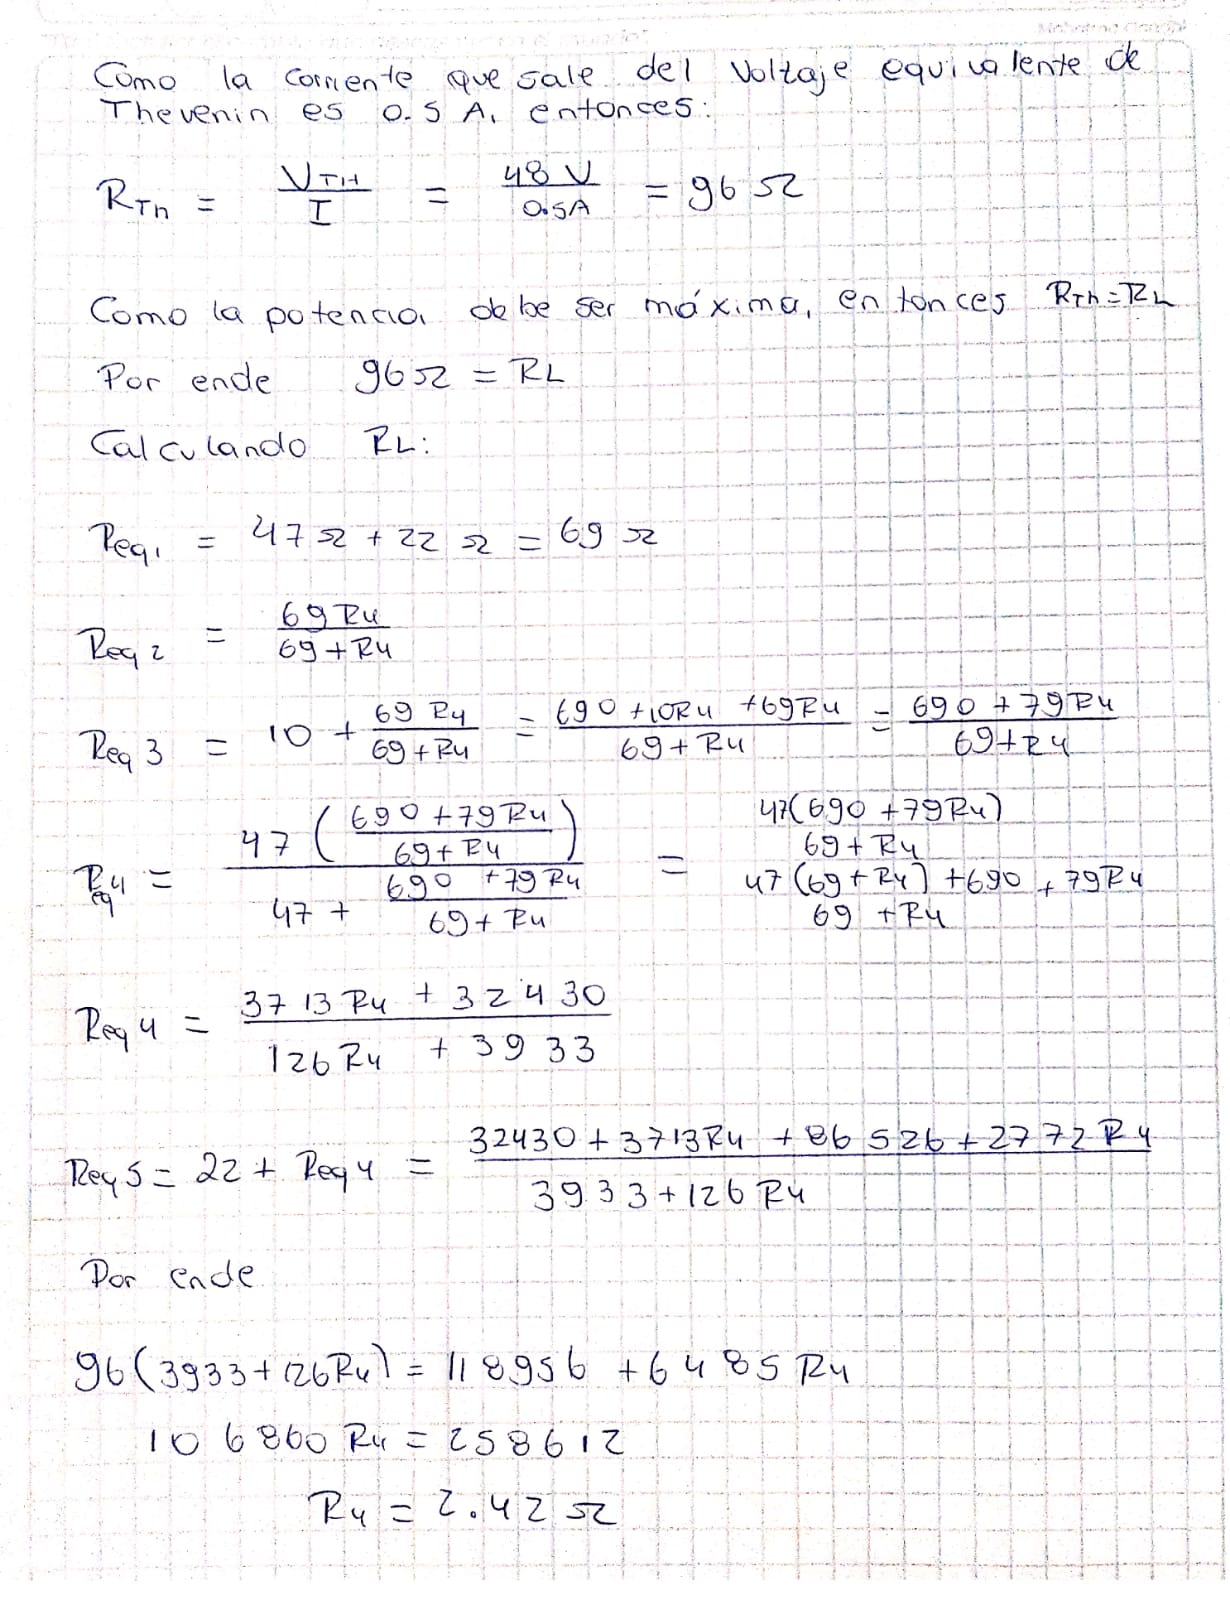 Como la corriente que sale del Voltaje equivalente de
Thevenin es 0.5 A, entonces:
R_Th = V_TH / I = 48 V / 0.5A = 96 Ω
Como la potencia debe ser máxima, entonces R_Th = R_L
Por ende 96 Ω = RL
Calculando RL:
Req1 = 47 Ω + 22 Ω = 69 Ω
Req2 = 69 R4 / 69 + R4
Req3 = 10 + 69 R4 / 69 + R4 = 690 + 10R4 + 69R4 / 69 + R4 = 690 + 79R4 / 69 + R4
Req4 = 47 (690 + 79R4 / 69 + R4) / 47 + 690 + 79R4 / 69 + R4 = 47(690 + 79R4) / 69 + R4 / 47(69 + R4) + 690 + 79R4 / 69 + R4
Req4 = 3713 R4 + 32430 / 126 R4 + 3933
Req5 = 22 + Req4 = 32430 + 3713R4 + 86526 + 2772 R4 / 3933 + 126 R4
Por ende
96(3933 + 126R4) = 118956 + 6485 R4
106860 R4 = 258612
R4 = 2.42 Ω